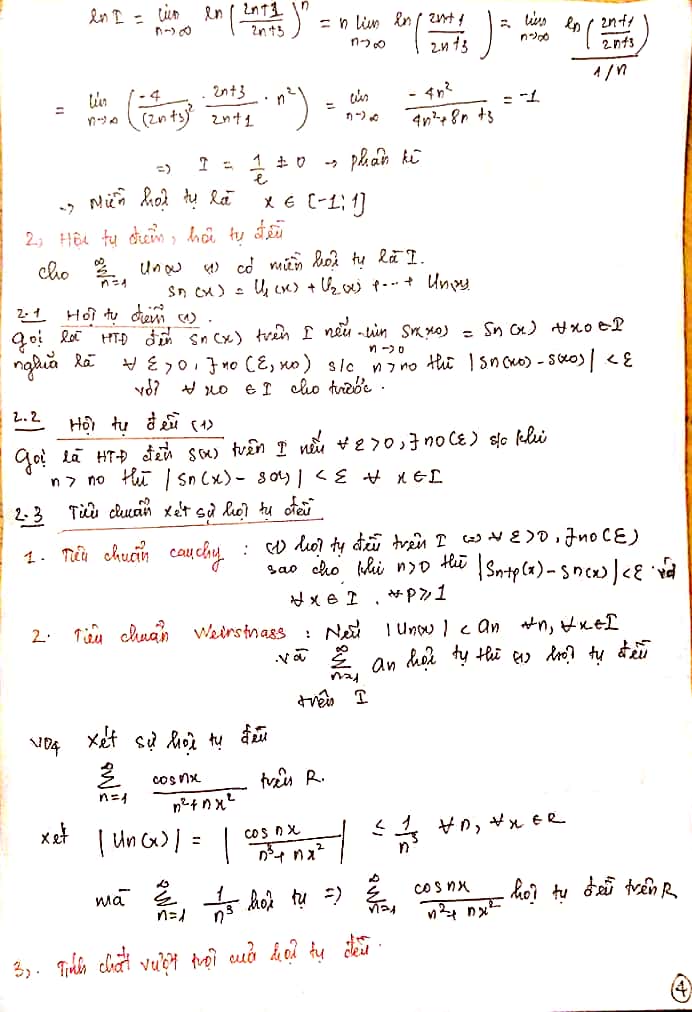 ln I = lim n→∞ ln (2n+1/2n+3)^n = n lim n→∞ ln (2n+1/2n+3) = lim n→∞ ln (2n+1/2n+3) / 1/n
= lim n→∞ (-4/(2n+3)² · 2n+3/2n+1 · n²) = lim n→∞ -4n²/4n²+8n+3 = -1
=> I = 1/e ≠ 0 → phân kì
→ Miền hội tụ là x ∈ [-1;1]
2, Hội tụ điểm, hội tụ đều
cho ∞ Σ n=1 Un(x) (1) có miền hội tụ là I.
Sn(x) = U1(x) + U2(x) + ... + Un(x)
2.1 Hội tụ điểm (1).
Gọi là HTĐ đến Sn(x) trên I nếu lim n→0 Sn(x0) = Sn(x) ∀x0 ∈ I
nghĩa là ∀ ε>0, ∃ n0(ε, x0) s/c n>n0 thì |Sn(x0) - S(x0)| < ε
với ∀ x0 ∈ I cho trước.
2.2 Hội tụ đều (1)
Gọi là HTĐ đến S(x) trên I nếu ∀ ε>0, ∃ n0(ε) s/c khi
n > n0 thì |Sn(x) - S(x)| < ε ∀ x ∈ I
2.3 Tiêu chuẩn xét sự hội tụ đều
1. Tiêu chuẩn cauchy : (1) hội tụ đều trên I <=> ∀ ε>0, ∃ n0(ε)
sao cho khi n>0 thì |Sn+p(x) - Sn(x)| < ε với
∀ x ∈ I, ∀ p ≥ 1
2. Tiêu chuẩn Weirstnass : Nếu |Un(x)| < an ∀n, ∀x ∈ I
và ∞ Σ n=1 an hội tụ thì (1) hội tụ đều
trên I
VD4 xét sự hội tụ đều
∞ Σ n=1 cosnx / n²+nx² trên R.
xét |Un(x)| = |cosnx / n³+nx²| ≤ 1/n³ ∀n, ∀x ∈ R
mà ∞ Σ n=1 1/n³ hội tụ => ∞ Σ n=1 cosnx / n²+nx² hội tụ đều trên R
3,. Tính chất vượt trội của hội tụ đều.
4